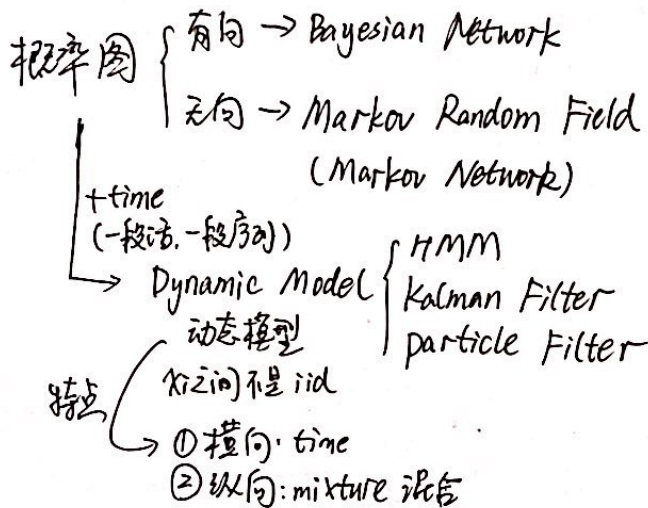 概率图
有向 → Bayesian Network
无向 → Markov Random Field
(Markov Network)
+time
(一段话,一段序列)
Dynamic Model
HMM
Kalman Filter
particle Filter
动态模型
xi之间不是iid
特点
① 横向:time
② 纵向:mixture 混合